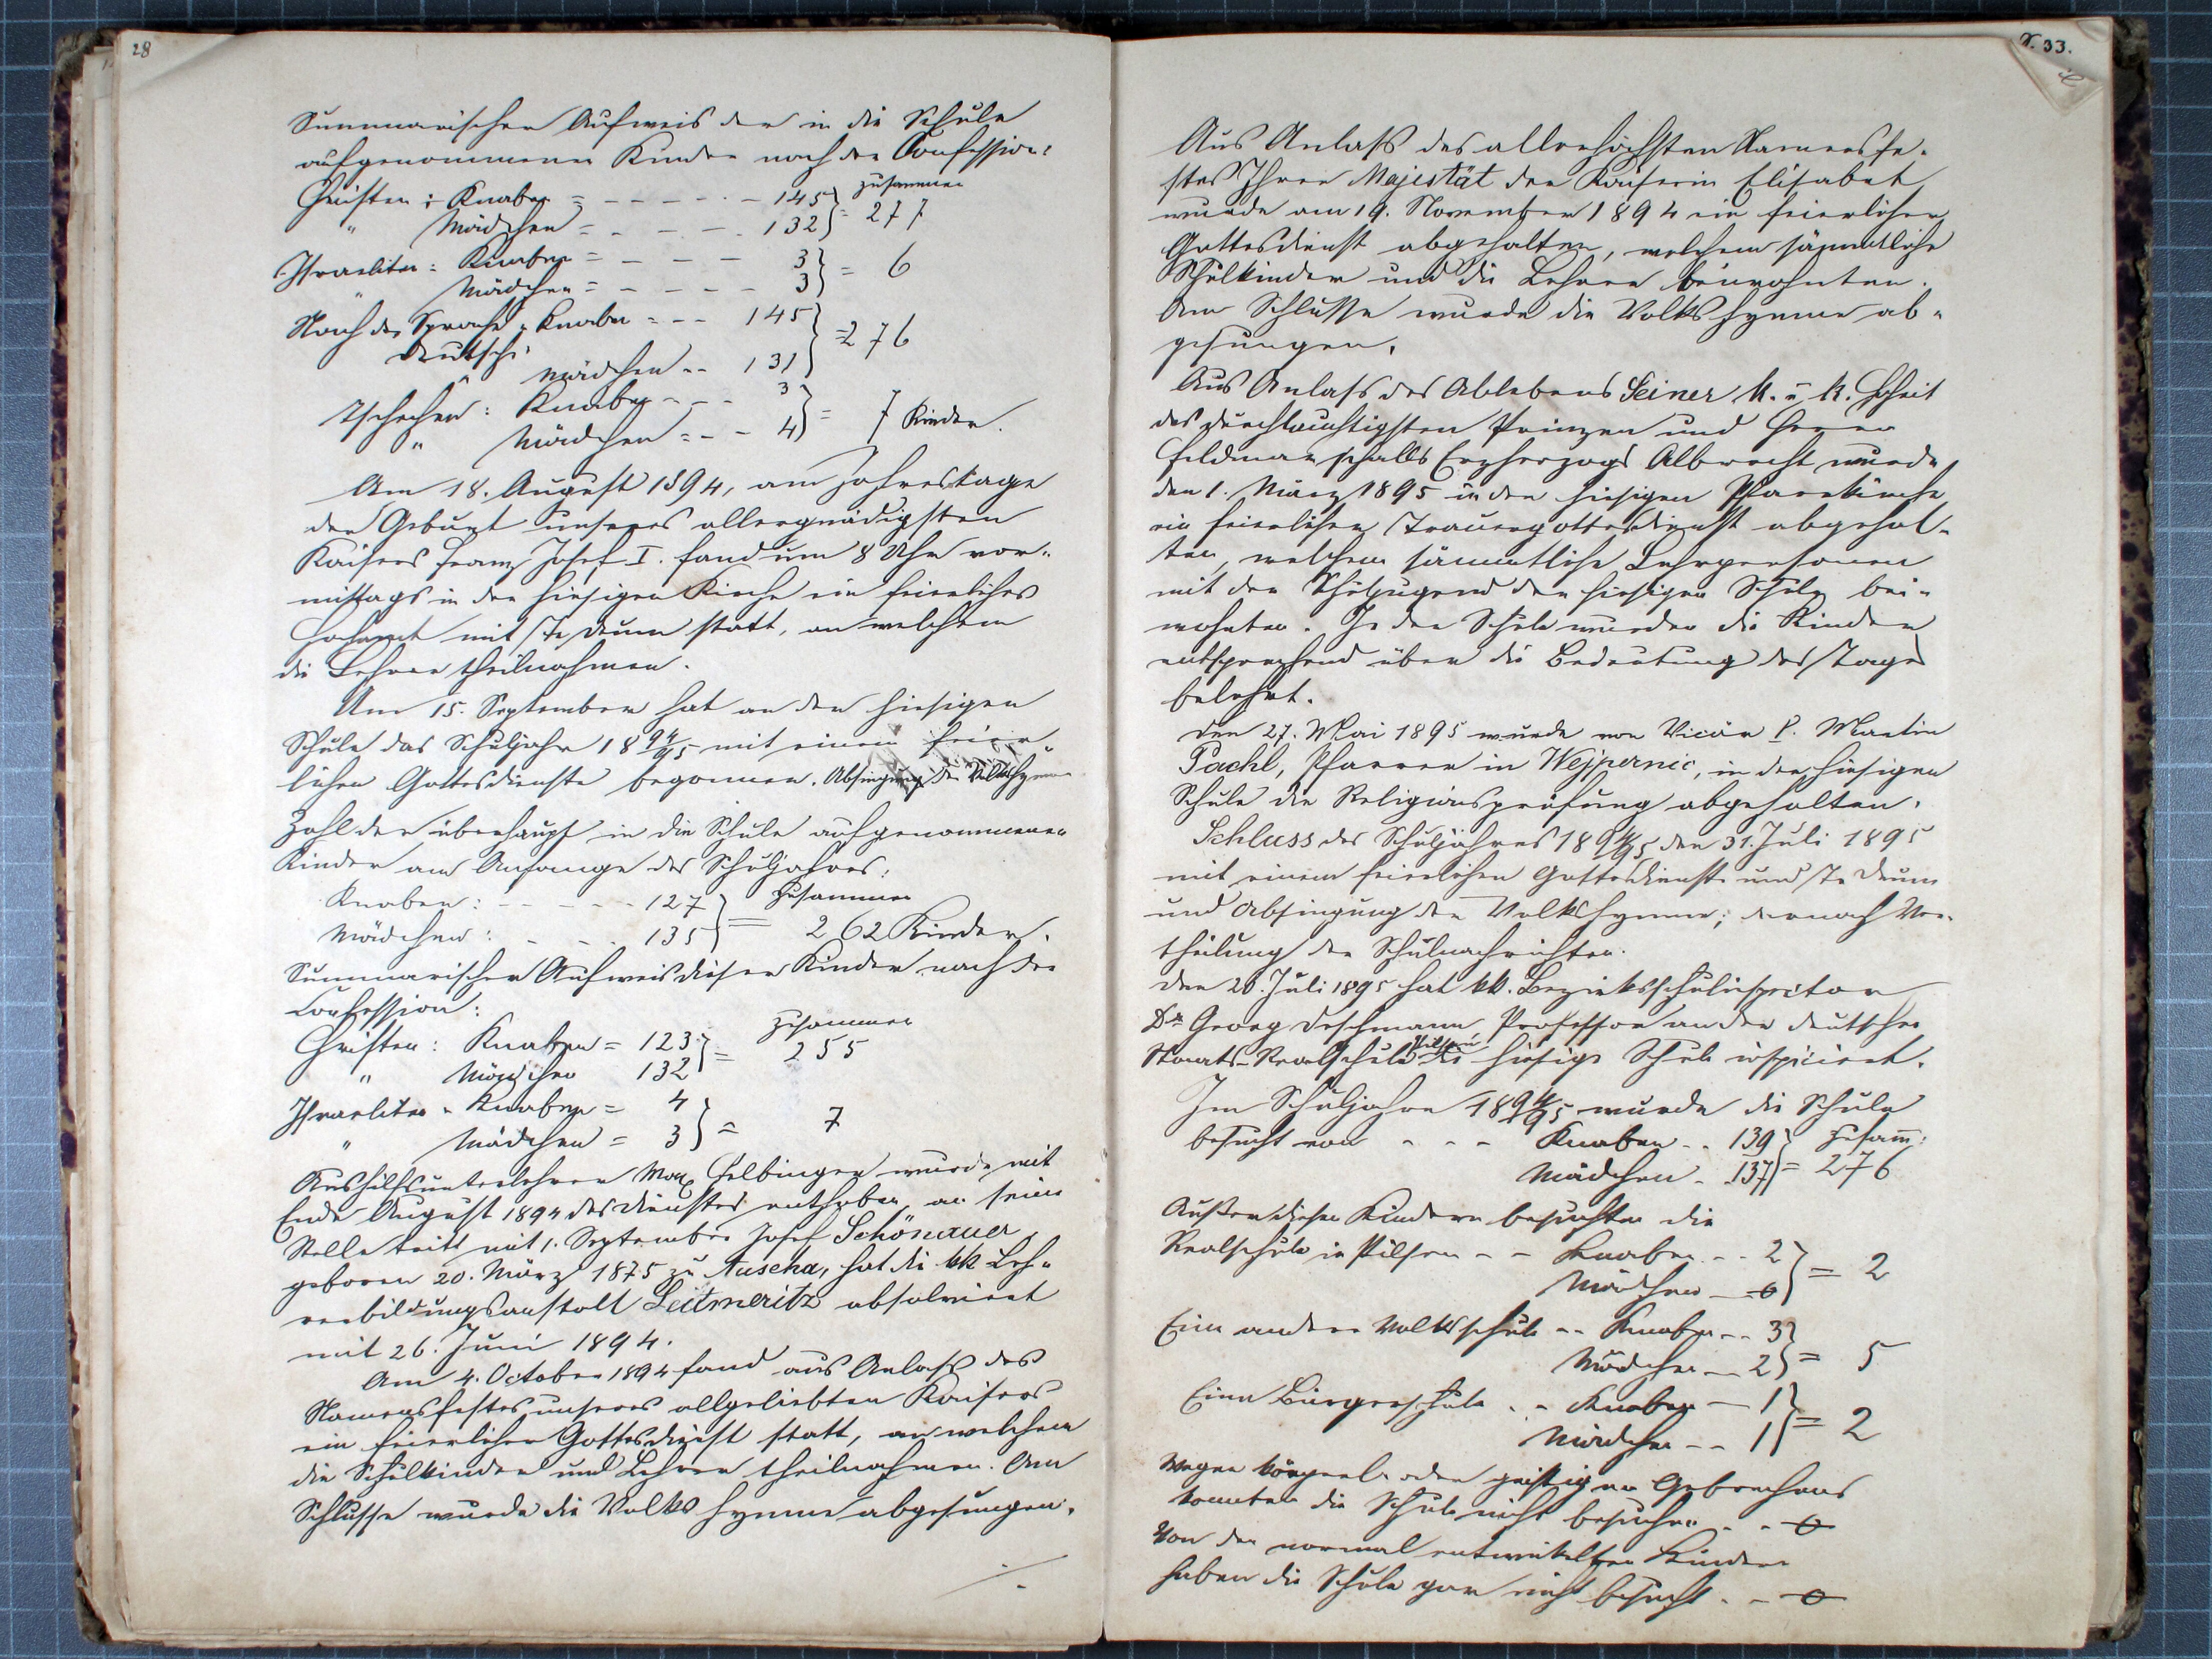 28
Summarischer Ausweis der in die Schule
aufgenommenen Kinder nach der Confession:
Christen: Knaben = - - - - - - 145 } zusammen
" Mädchen = - - - - 132 } = 277
Israeliten: Knaben = - - - - 3 }
" Mädchen = - - - - - 3 } = 6
Nach der Sprache: Knaben = - - 145 }
Deutsch: = 276
" Mädchen - - 131 }
Tschechen: Knaben - - - 3 }
" Mädchen = - - 4 } = 7 Kinder.
Am 18. August 1894, am Jahrestage
der Geburt unseres allergnädigsten
Kaisers Franz Josef I. fand um 8 Uhr vor-
mittags in der hiesigen Kirche ein feierliches
Hochamt mit Te deum statt, an welchem
die Lehrer theilnahmen.
Am 15. September hat an der hiesigen
Schule das Schuljahr 1894/95 mit einem feier-
lichen Gottesdienste begonnen. Absingung der Volkshymne
Zahl der überhaupt in die Schule aufgenommenen
Kinder am Anfange des Schuljahres:
Knaben: - - - - - 127 } Zusammen
Mädchen: - - - 135 } = 262 Kinder.
Summarischer Ausweis dieser Kinder nach der
Confession:
Christen: Knaben = 123 } zusammen
" Mädchen 132 } = 255
Israeliten: Knaben = 4 }
" Mädchen = 3 } = 7
Aushilfsunterlehrer Max Helbinger wurde mit
Ende August 1894 des Dienstes enthoben, an seine
Stelle tritt mit 1. September Josef Schönauer
geboren 20. März 1875 zu Auscha, hat die kk Leh-
rerbildungsanstalt Leitmeritz absolviert
mit 26. Juni 1894.
Am 4. October 1894 fand aus Anlaß des
Namensfestes unseres allgeliebten Kaisers
ein feierlicher Gottesdienst statt, an welchem
die Schulkinder und Lehrer theilnahmen. Am
Schlusse wurde die Volkshymne abgesungen.
./.
33.
Aus Anlaß des allerhöchsten Namensfe-
stes Ihrer Majestät der Kaiserin Elisabet
wurde am 19. November 1894 ein feierlicher
Gottesdienst abgehalten, welchem sämmtliche
Schulkinder und die Lehrer beiwohnten.
Am Schlusse wurde die Volkshymne ab-
gesungen.
Aus Anlaß des Ablebens Seiner k. u. k. Hoheit
des durchlauchtigsten Prinzen und Herrn
Feldmarschalls Erzherzogs Albrecht wurde
den 1. März 1895 in der hiesigen Pfarrkirche
ein feierlicher Trauergottesdienst abgehal-
ten, welchem sämmtliche Lehrpersonen
mit der Schuljugend der hiesigen Schule bei-
wohnten. In der Schule wurden die Kinder
entsprechend über die Bedeutung des Tages
belehrt.
Den 27. Mai 1895 wurde von Vicär P. Martin
Pachl, Pfarrer in Wejpernic, in der hiesigen
Schule die Religionsprüfung abgehalten.
Schluss des Schuljahres 1894/95 den 31. Juli 1895
mit einem feierlichen Gottesdienste und Te Deum
und Absingung der Volkshymne; darnach Ver-
theilung der Schulnachrichten.
Den 20. Juli 1895 hat kk. Bezirksschulinspector
Dr Georg Deschmann, Professor an der deutschen
Staats-Realschule Pilsen die hiesige Schule inspiciert.
Im Schuljahre 1894/95 wurde die Schule
besucht von - - - Knaben - - 139 } zusam̄:
Mädchen - 137 } = 276
Außer diesen Kindern besuchten die
Realschule in Pilsen - - Knaben - - 2 }
Mädchen - 0 } = 2
Eine andere Volksschule - - Knaben - - 3 }
Mädchen - 2 } = 5
Eine Bürgerschule - - Knaben - 1 }
Mädchen - - 1 } = 2
Wegen körperl. oder geistigen Gebrechens
konnten die Schule nicht besuchen - - 0
Von den normal entwickelten Kindern
haben die Schule gar nicht besucht. - - 0